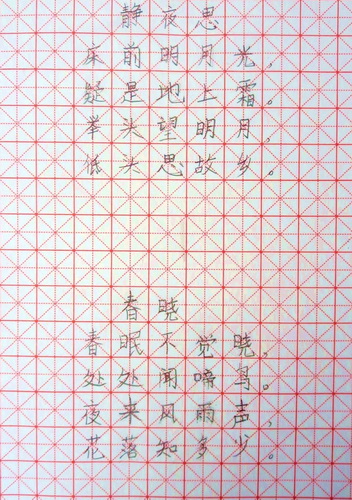 静夜思
床前明月光，
疑是地上霜。
举头望明月，
低头思故乡。
春晓
春眠不觉晓，
处处闻啼鸟。
夜来风雨声，
花落知多少。